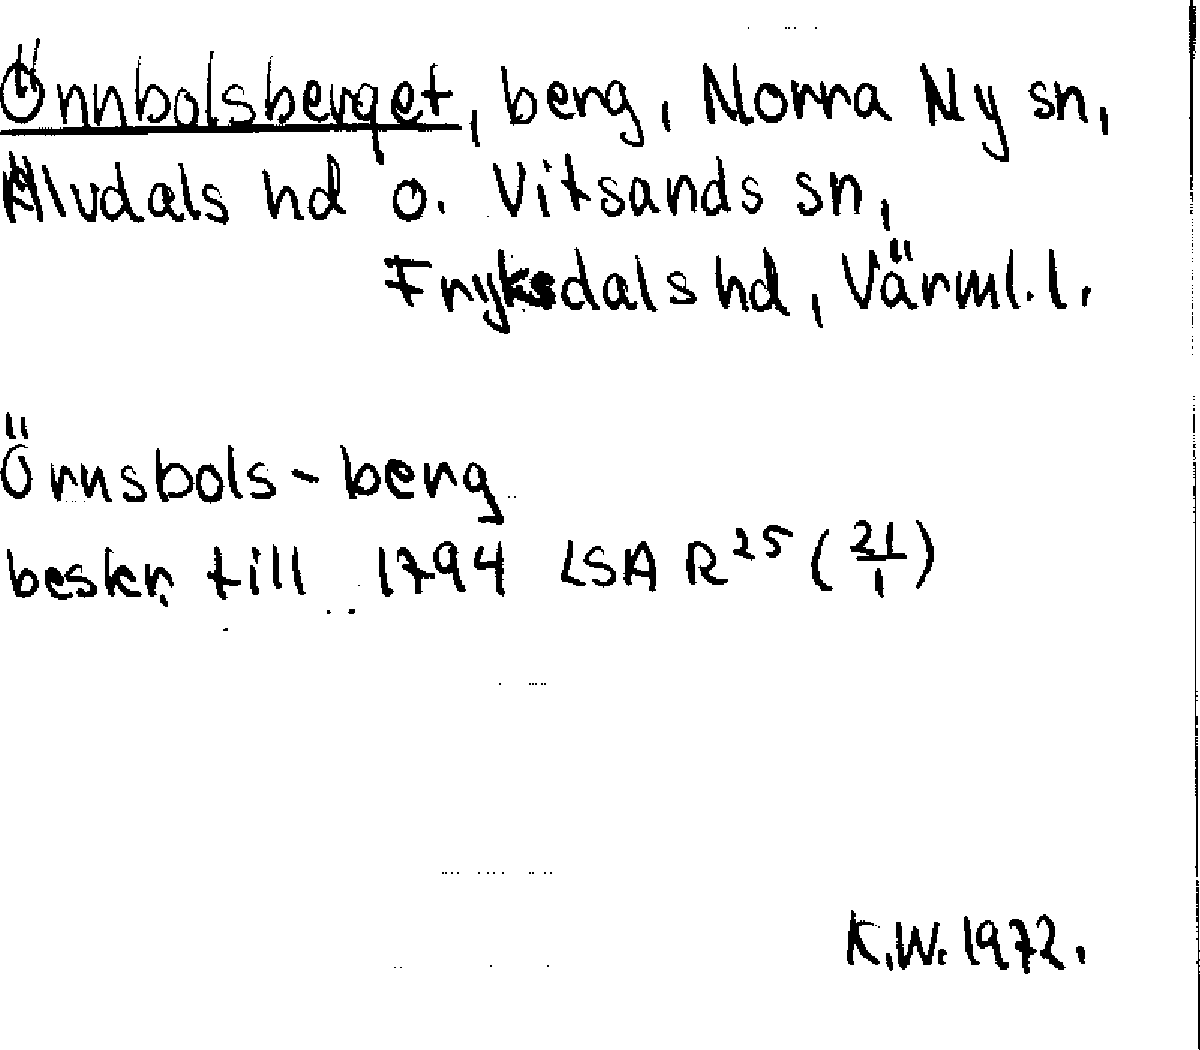 Önnbolsberget, berg, Norra Ny sn,
Älvdals hd o. Vitsands sn,
Fryksdals hd, Värml. l.
Örnsbols-berg
beskr. till 1794 LSA R25 (21/1)
K.W. 1972.